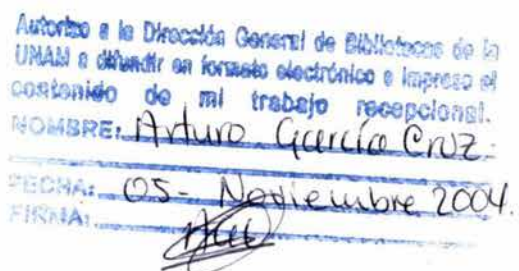 Autorizo a la Dirección General de Bibliotecas de la
UNAM a difundir en formato electrónico e impreso el
contenido de mi trabajo recepcional.
NOMBRE: Arturo García Cruz.
FECHA: 05- Noviembre 2004.
FIRMA: